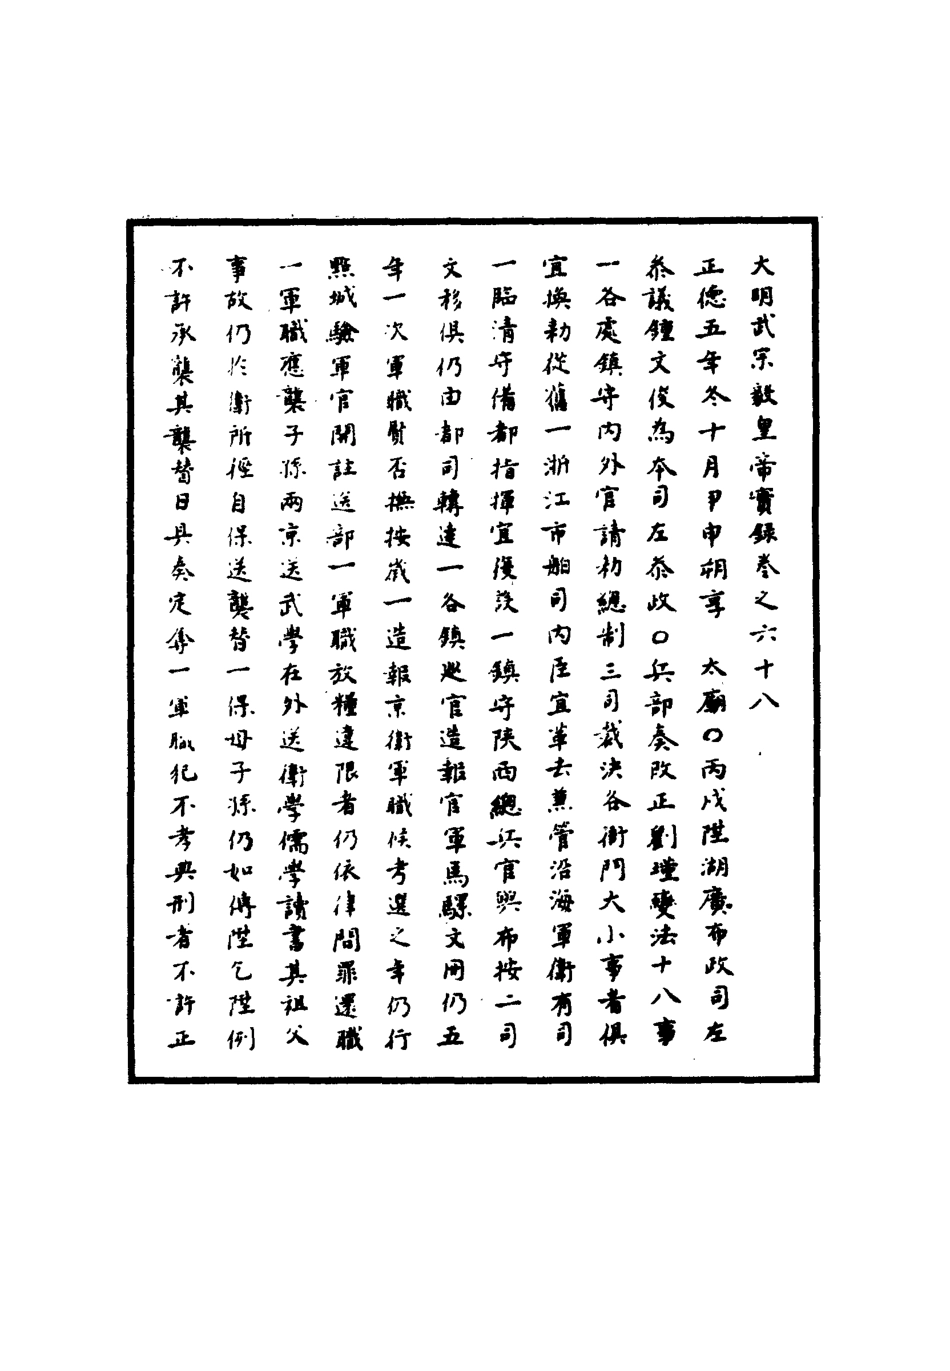 大明武宗毅皇帝實錄卷之六十八
正德五年冬十月甲申朔享　太廟○丙戌陞湖廣布政司左
參議鐘文俊為本司左參政○兵部奏改正劉瑾變法十八事
一各處鎮守內外官請勑總制三司裁決各衙門大小事者俱
宜換勑從舊一浙江市舶司內臣宜革去兼管沿海軍衛有司
一臨清守備都指揮宜復設一鎮守陝西總兵官與布按二司
文移俱仍由都司轉達一各鎮巡官造報官軍馬騾文冊仍五
年一次軍職賢否撫按歲一造報京衛軍職候考選之年仍行
點城驗軍官開註送部一軍職放糧違限者仍依律問罪還職
一軍職應襲子孫兩京送武學在外送衛學儒學讀書其祖父
事故仍於衛所徑自保送襲替一保母子孫仍如傳陞乞陞例
不許承襲其襲替日具奏定奪一軍職犯不孝典刑者不許正